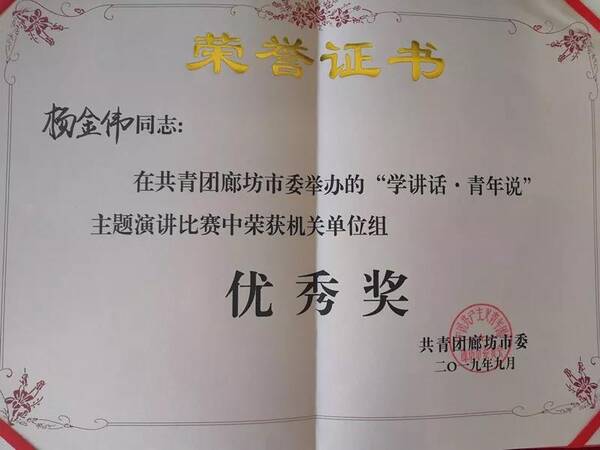 荣誉证书
杨金伟同志:
在共青团廊坊市委举办的“学讲话·青年说”
主题演讲比赛中荣获机关单位组
优秀奖
共青团廊坊市委
二〇一九年九月